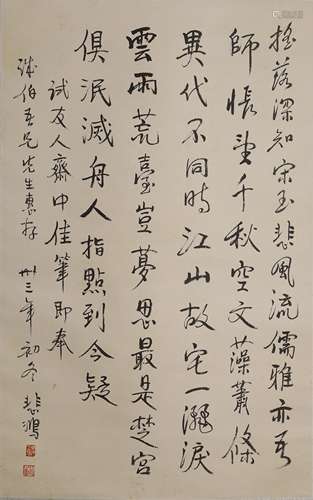 搖落深知宋玉悲風流儒雅亦吾
師悵望千秋空文藻蕭條
異代不同時江山故宅一灑淚
雲雨荒臺豈夢思最是楚宮
俱泯滅舟人指點到今疑
試友人齋中佳筆即奉
伯吾兄先生惠存 卅三年初冬 悲鴻